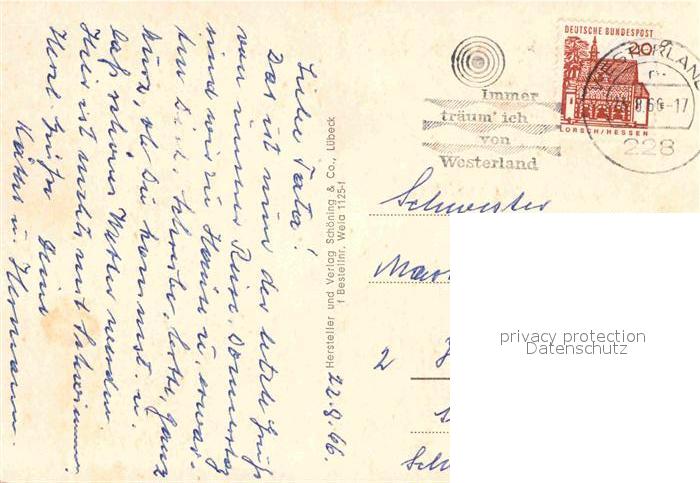 22.8.66.
Liebe Tata!
Das ist nun der letzte Gruß
von unserer Reise. Donnerstag
sind wir zu Hause u. erwar-
ten D. l. Schreiben, bitte, ganz
kurz, ob Du kommst. u.
laß schönes Wetter werden.
Hier ist nichts mit Schwimmen.
Herzl. Grüße Deine
Käthe u. Hermann.
Hersteller und Verlag Schöning & Co., Lübeck
f Bestellnr. Wela 1125-f
Immer
träum' ich
von
Westerland
DEUTSCHE BUNDESPOST
20
LORSCH/HESSEN
WESTERLAND
.8.66-17
228
Schwester
2
privacy protection
Datenschutz